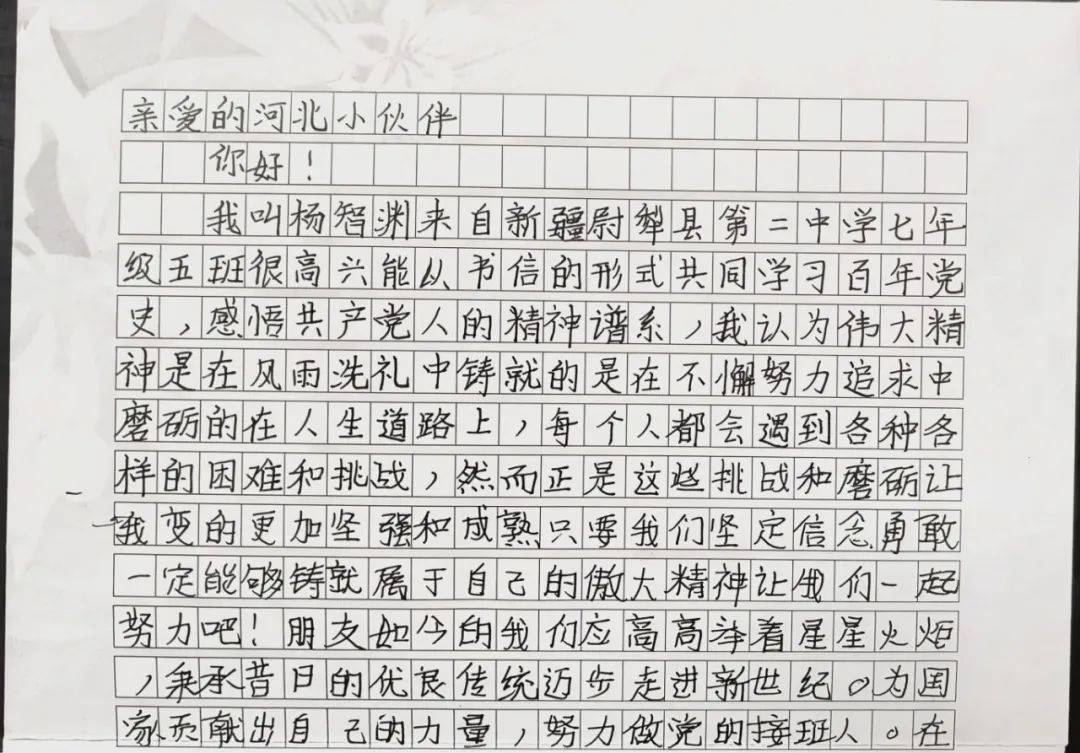 亲爱的河北小伙伴
你好！
我叫杨智渊来自新疆尉犁县第二中学七年
级五班很高兴能从书信的形式共同学习百年党
史，感悟共产党人的精神谱系，我认为伟大精
神是在风雨洗礼中铸就的是在不懈努力追求中
磨砺的在人生道路上，每个人都会遇到各种各
样的困难和挑战，然而正是这些挑战和磨砺让
我变的更加坚强和成熟只要我们坚定信念勇敢
一定能够铸就属于自己的傲大精神让我们一起
努力吧！朋友如今的我们应高高举着星星火炬
，秉承昔日的优良传统迈步走进新世纪。为国
家贡献出自己的力量，努力做党的接班人。在